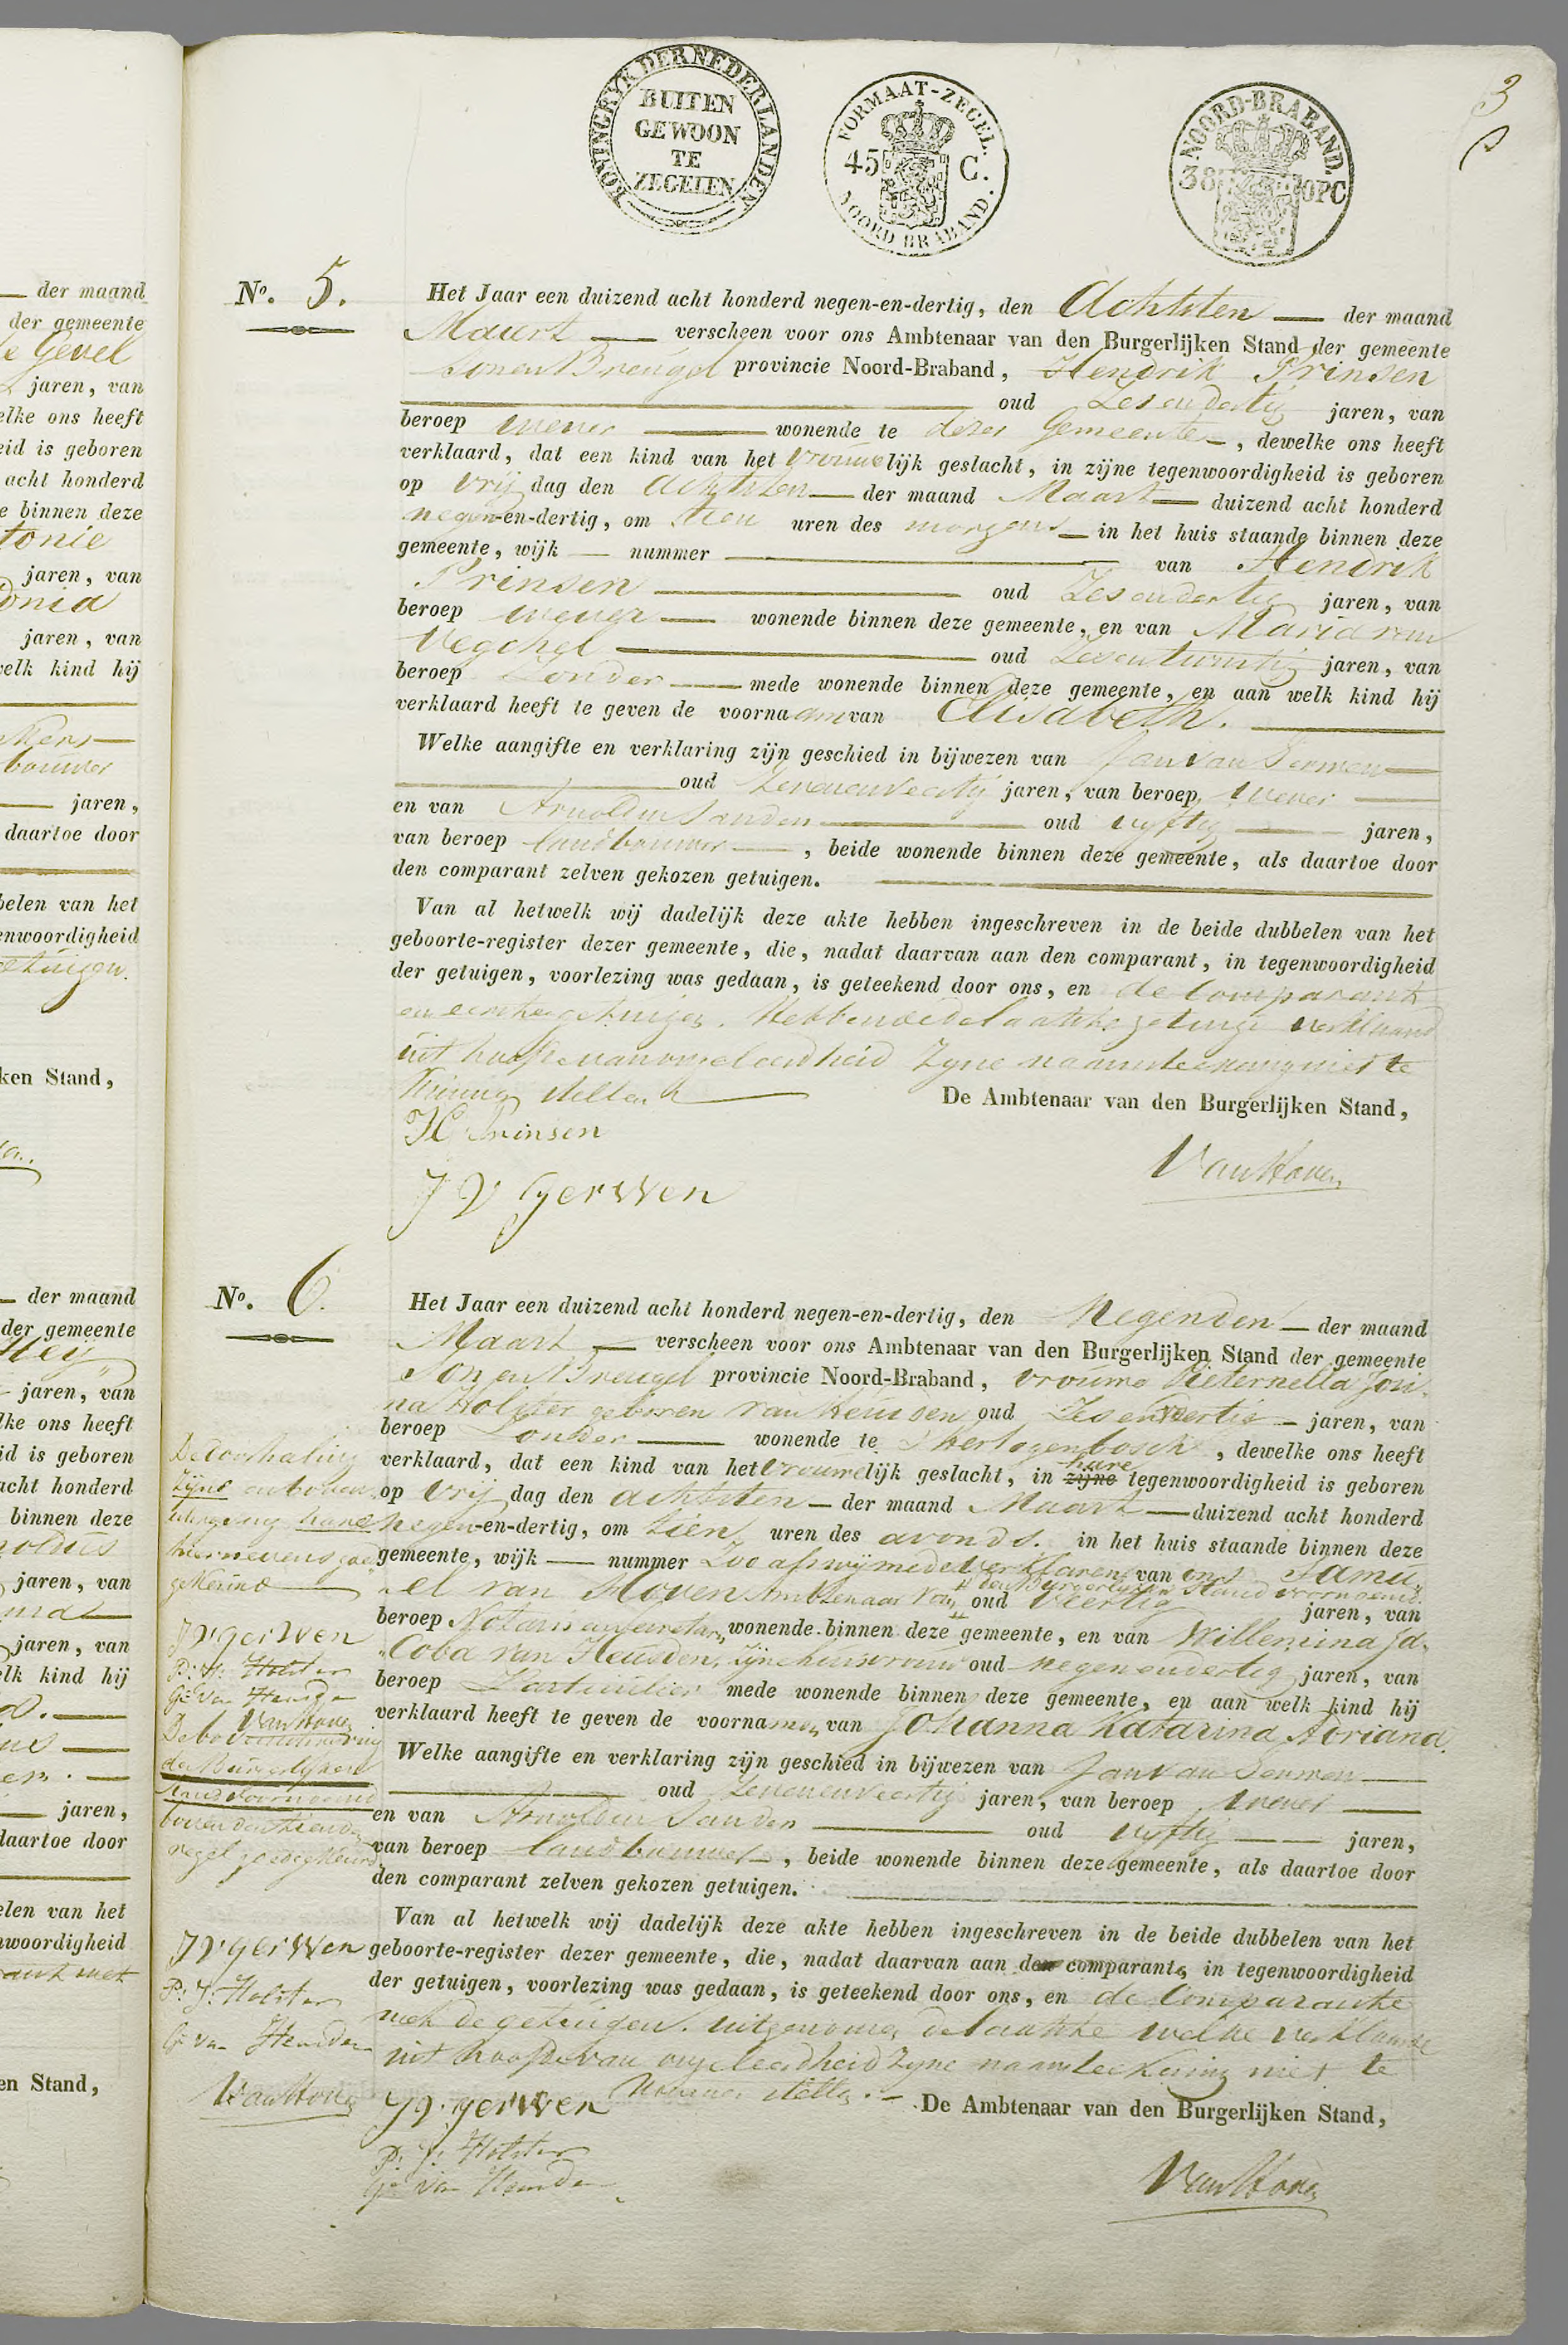 3
KONINGRYK DER NEDERLANDEN
BUITEN
GEWOON
TE
ZEGELEN
FORMAAT-ZEGEL.
45 C.
NOORD BRABAND.
NOORD-BRABAND.
38 OPC
der maand
der gemeente
Gevel
jaren, van
elke ons heeft
eid is geboren
acht honderd
e binnen deze
tonie
jaren, van
onia
jaren, van
welk kind hij
bouwer
jaren,
daartoe door
belen van het
enwoordigheid
getuigen.
ken Stand,
der maand
der gemeente
jaren, van
lke ons heeft
id is geboren
acht honderd
binnen deze
noldus
jaren, van
jaren, van
elk kind hij
jaren,
daartoe door
elen van het
nwoordigheid
en Stand,
No. 5.
Het Jaar een duizend acht honderd negen-en-dertig, den Achtsten der maand
Maart verscheen voor ons Ambtenaar van den Burgerlijken Stand der gemeente
Son en Breugel provincie Noord-Braband, Hendrik Prinsen
oud Zesendertig jaren, van
beroep wever wonende te dezer Gemeente, dewelke ons heeft
verklaard, dat een kind van het vrouwelijk geslacht, in zijne tegenwoordigheid is geboren
op Vrij dag den Achtsten der maand Maart duizend acht honderd
negen-en-dertig, om tien uren des morgens in het huis staande binnen deze
gemeente, wijk nummer van Hendrik
Prinsen oud Zesendertig jaren, van
beroep wever wonende binnen deze gemeente, en van Maria van
Vegchel oud Zeventwintig jaren, van
beroep Zonder mede wonende binnen deze gemeente, en aan welk kind hij
verklaard heeft te geven de voornaam van Elisabeth.
Welke aangifte en verklaring zijn geschied in bijwezen van Jan van Gerwen
oud Zevenenveertig jaren, van beroep Wever
en van Arnoldus Sanders oud vyftig jaren,
van beroep landbouwer, beide wonende binnen deze gemeente, als daartoe door
den comparant zelven gekozen getuigen.
Van al hetwelk wij dadelijk deze akte hebben ingeschreven in de beide dubbelen van het
geboorte-register dezer gemeente, die, nadat daarvan aan den comparant, in tegenwoordigheid
der getuigen, voorlezing was gedaan, is geteekend door ons, en de Comparant
en eerste getuigen. Hebbende de laatste getuige verklaard
uit hoofde van ongeleerdheid Zyne naamteekening niet te
kunnen stellen
De Ambtenaar van den Burgerlijken Stand,
H Prinsen
VanHoven
J V Gerwen
No. 6.
Het Jaar een duizend acht honderd negen-en-dertig, den Negenden der maand
Maart verscheen voor ons Ambtenaar van den Burgerlijken Stand der gemeente
Son en Breugel provincie Noord-Braband, vrouwe Pieternella Jori-
na Holster geboren van Heusden oud Zesenveertig jaren, van
beroep Zonder wonende te s'Hertogenbosch, dewelke ons heeft
hare
verklaard, dat een kind van het vrouwelijk geslacht, in zijne tegenwoordigheid is geboren
op Vrij dag den achtsten der maand Maart duizend acht honderd
negen-en-dertig, om tien uren des avonds. in het huis staande binnen deze
gemeente, wijk nummer Zoo als wij mede verklaren van ons Samu-
den Burgerlijken Stand voornoemd.
el van Hoven Ambtenaar van oud Veertig jaren, van
beroep Notaris en Secretaris, wonende binnen deze gemeente, en van Willemina Ja-
coba van Heusden, zijne huisvrouw oud negenendertig jaren, van
beroep Particulier mede wonende binnen deze gemeente, en aan welk kind hij
verklaard heeft te geven de voornamen van Johanna Katarina Adriana.
Welke aangifte en verklaring zijn geschied in bijwezen van Jan van Gerwen
oud Zevenenveertig jaren, van beroep Wever
en van Arnoldus Sanders oud vyftig jaren,
van beroep landbouwer, beide wonende binnen deze gemeente, als daartoe door
den comparant zelven gekozen getuigen.
Van al hetwelk wij dadelijk deze akte hebben ingeschreven in de beide dubbelen van het
geboorte-register dezer gemeente, die, nadat daarvan aan de comparante, in tegenwoordigheid
der getuigen, voorlezing was gedaan, is geteekend door ons, en de Comparante
met de getuigen. uitgenomen de laatste welke verklaarde
uit hoofde van ongeleerdheid Zyne naamteekening niet te
kunnen stellen.
De Ambtenaar van den Burgerlijken Stand,
J V gerwen
P: J: Holster
Ge Van Heusden
VanHoven
De doorhaling
Zijne en boven
hare
hiernevens goed
gekeurd
J V gerwen
P: J: Holster
Ge van Heusden
VanHoven
den Burgerlijken
Stand voornoemd
boven den tienden
regel goedgekeurd
J V gerwen
P: J: Holster
Ge van Heusden
VanHoven